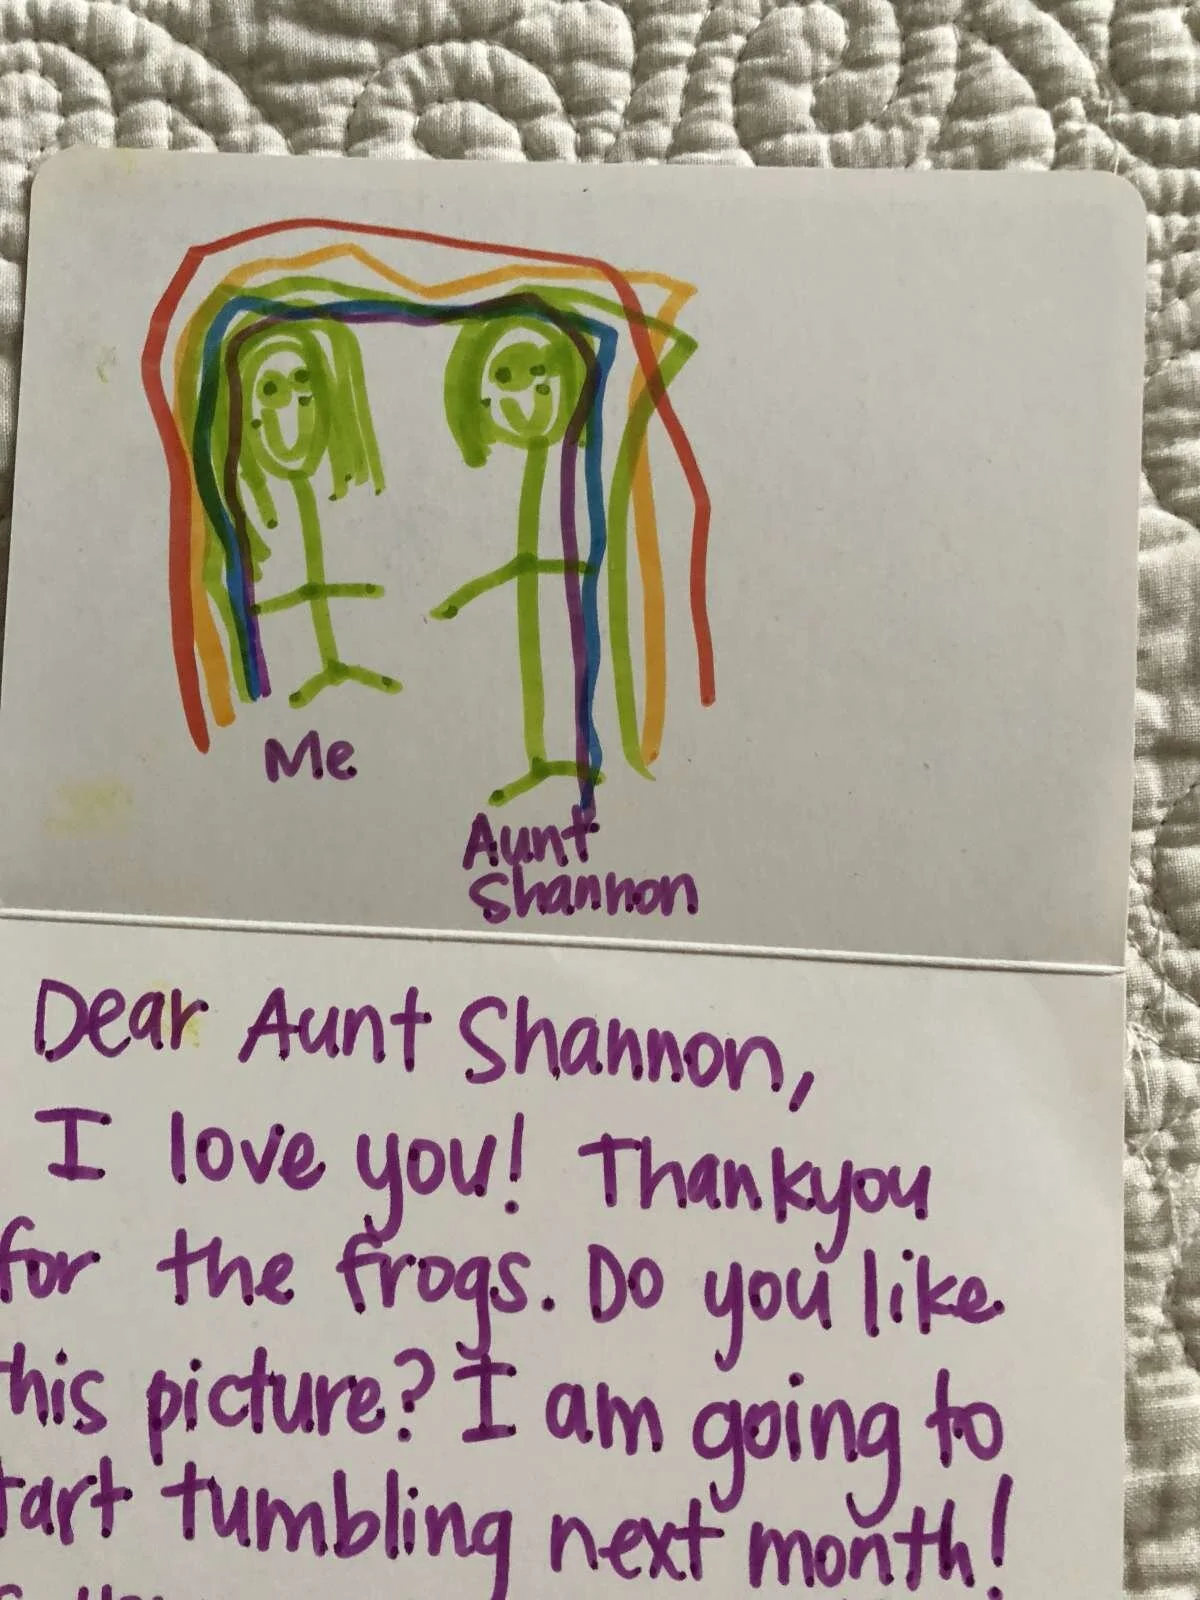 Me
Aunt
Shannon
Dear Aunt Shannon,
I love you! Thankyou
for the frogs. Do you like
this picture? I am going to
tart tumbling next month!